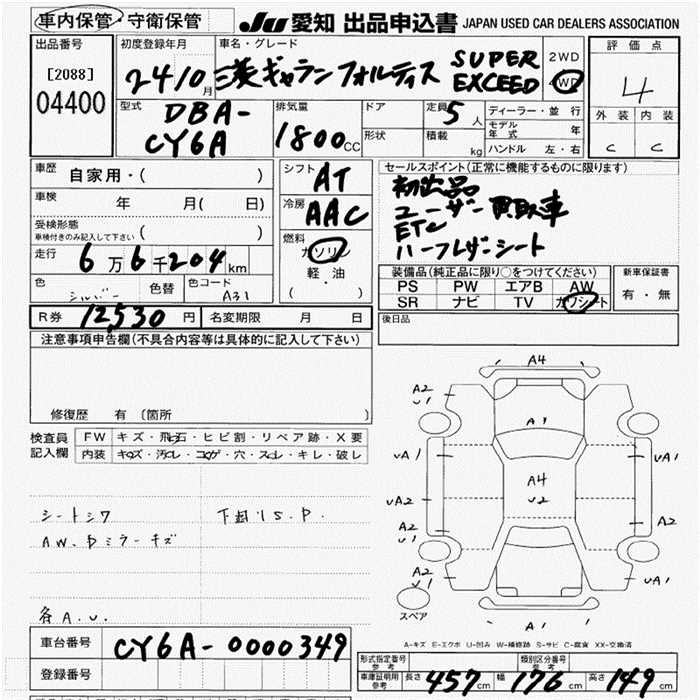 車内保管・守衛保管
JU 愛知 出品申込書 JAPAN USED CAR DEALERS ASSOCIATION
出品番号
[2088]
04400
初度登録年月
24 10月
車名・グレード
三菱ギャラン フォルティス SUPER EXCEED
2WD
4WD
評価点
4
外装 内装
C C
型式
DBA-
CY6A
排気量
1800CC
ドア
形状
定員 5人
積載 kg
ディーラー・並行
モデル年式 年
ハンドル 左・右
車歴
自家用・( )
車検
年 月( 日)
受検形態
車検付きのみ記入して下さい ( )
走行
6万6千204km
色
シルバー
色替
色コード
A31
シフト
AT
冷房
AAC
燃料
ガソリン
軽・油
( ・ )
セールスポイント(正常に機能するものに限ります)
初出品
ユーザー買取車
ETC
ハーフレザーシート
装備品(純正品に限り○をつけてください)
PS PW エアB AW
SR ナビ TV カワシート
新車保証書
有・無
後日品
R券 12,530円
名変期限 月 日
注意事項申告欄(不具合内容等は具体的に記入して下さい)
修復歴 有 〔箇所 〕
検査員記入欄
FW キズ・飛石・ヒビ割・リペア跡・X要
内装 キズ・汚レ・コゲ・穴・スレ・キレ・破レ
シートシワ
下廻りS.P.
AW、Dミラーキズ
各A.U.
A4
A2
U1
A1
UA1
UA1
A4
U2
UA2
A2
A2
U1
A2
U1
UA1
A1
スペア
A-キズ E-エクボ U-凹み W-補修跡 S-サビ C-腐食 XX-交換済
車台番号
CY6A-0000349
登録番号
形式指定番号 参考
類別区分番号 参考
車庫証明用 参考
長さ 457cm 幅 176cm 高さ 149cm